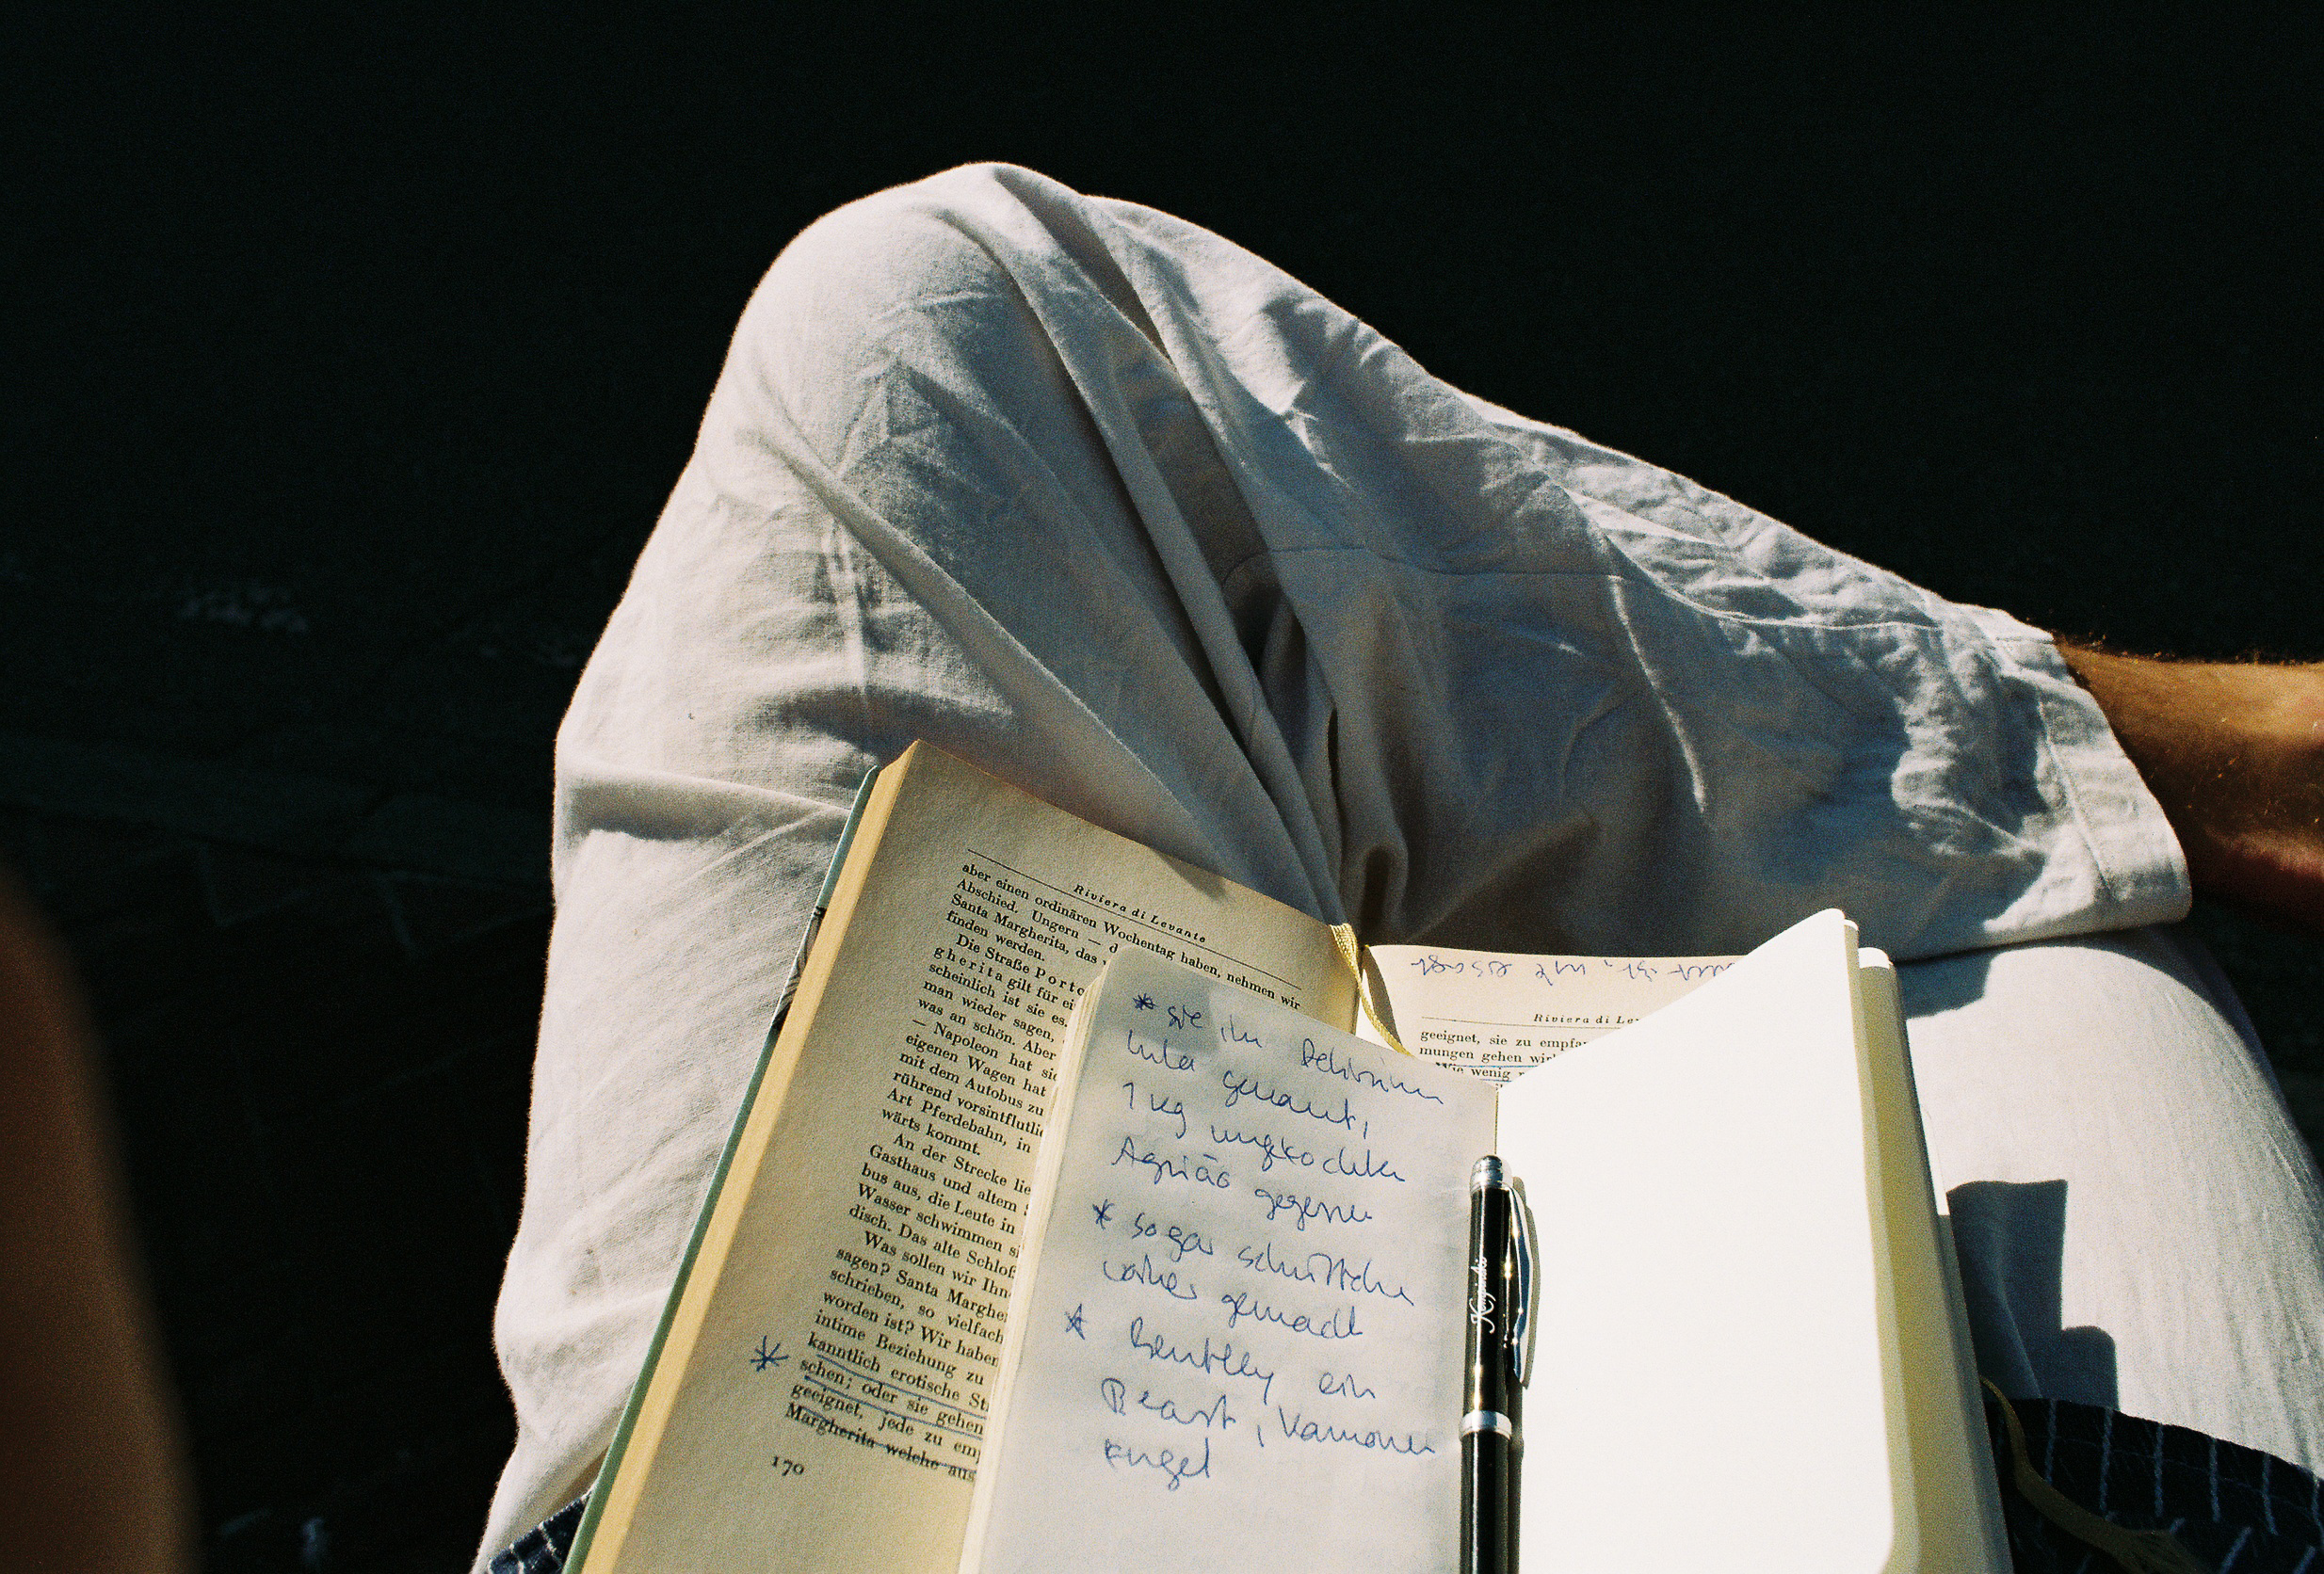 Riviera di Levante
aber einen ordinären Wochentag haben, nehmen wir
Abschied. Ungern — d
Santa Margherita, das
finden werden.
Die Straße Porto
gherita gilt für ei
scheinlich ist sie es.
man wieder sagen,
was an schön. Aber
— Napoleon hat sie
eigenen Wagen hat
mit dem Autobus zu
rührend vorsintflutlic
Art Pferdebahn, in
wärts kommt.
An der Strecke lie
Gasthaus und altem
bus aus, die Leute in
Wasser schwimmen si
disch. Das alte Schloß
Was sollen wir Ihn
sagen? Santa Margher
schrieben, so vielfach
worden ist? Wir haben
intime Beziehung zu
kanntlich erotische St
schen; oder sie gehen
geeignet, jede zu emp
Margherita welche aus
170
* sie im Delirium
Lula genannt,
1 kg ungekochten
gegessen
* sogar
gemacht
* Bentley ein
Beast, Kanonen
kugel
Riviera di Le
geeignet, sie zu empfa
mungen gehen wir
Wie wenig